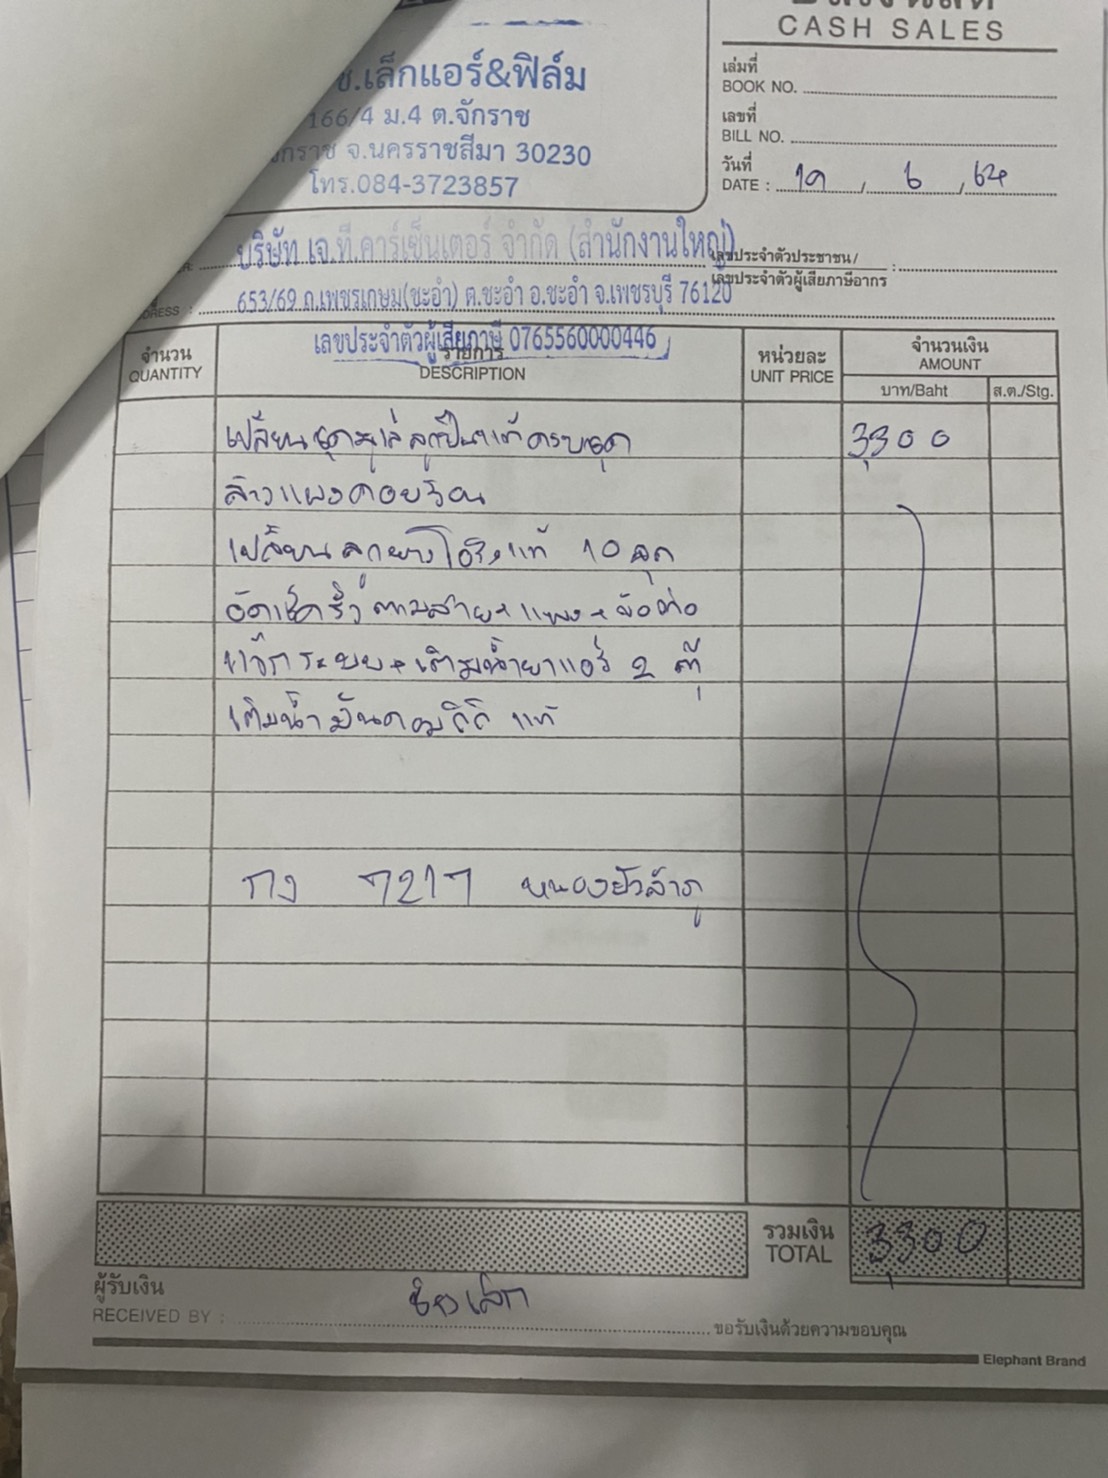 CASH SALES
ช.เล็กแอร์&ฟิล์ม
166/4 ม.4 ต.จักราช
จ.นครราชสีมา 30230
โทร.084-3723857
เล่มที่
BOOK NO.
เลขที่
BILL NO.
วันที่
DATE : 19 / 6 / 64
บริษัท เจ.ที.คาร์เซ็นเตอร์ จำกัด (สำนักงานใหญ่)
เลขประจำตัวประชาชน/
เลขประจำตัวผู้เสียภาษีอากร :
653/69 ถ.เพชรเกษม(ชะอำ) ต.ชะอำ อ.ชะอำ จ.เพชรบุรี 76120
เลขประจำตัวผู้เสียภาษี 0765560000446
จำนวน
QUANTITY
รายการ
DESCRIPTION
หน่วยละ
UNIT PRICE
จำนวนเงิน
AMOUNT
บาท/Baht
ส.ต./Stg.
เปลี่ยนชุดมูเล่ลูกปืนแท้ครบชุด 3,300
ล้างแผงคอยร้อน
เปลี่ยนลูกยางโอริงแท้ 10 จุด
อัดเช็ครั่วตามสาย+แผง+ข้อต่อ
แว๊กระบบ+เติมน้ำยาแอร์ 2 ตู้
เติมน้ำมันคอม แท้
กง 7217 หนองบัวลำภู
รวมเงิน
TOTAL
3,300
ผู้รับเงิน
RECEIVED BY : ช่างเล็ก
ขอรับเงินด้วยความขอบคุณ
Elephant Brand